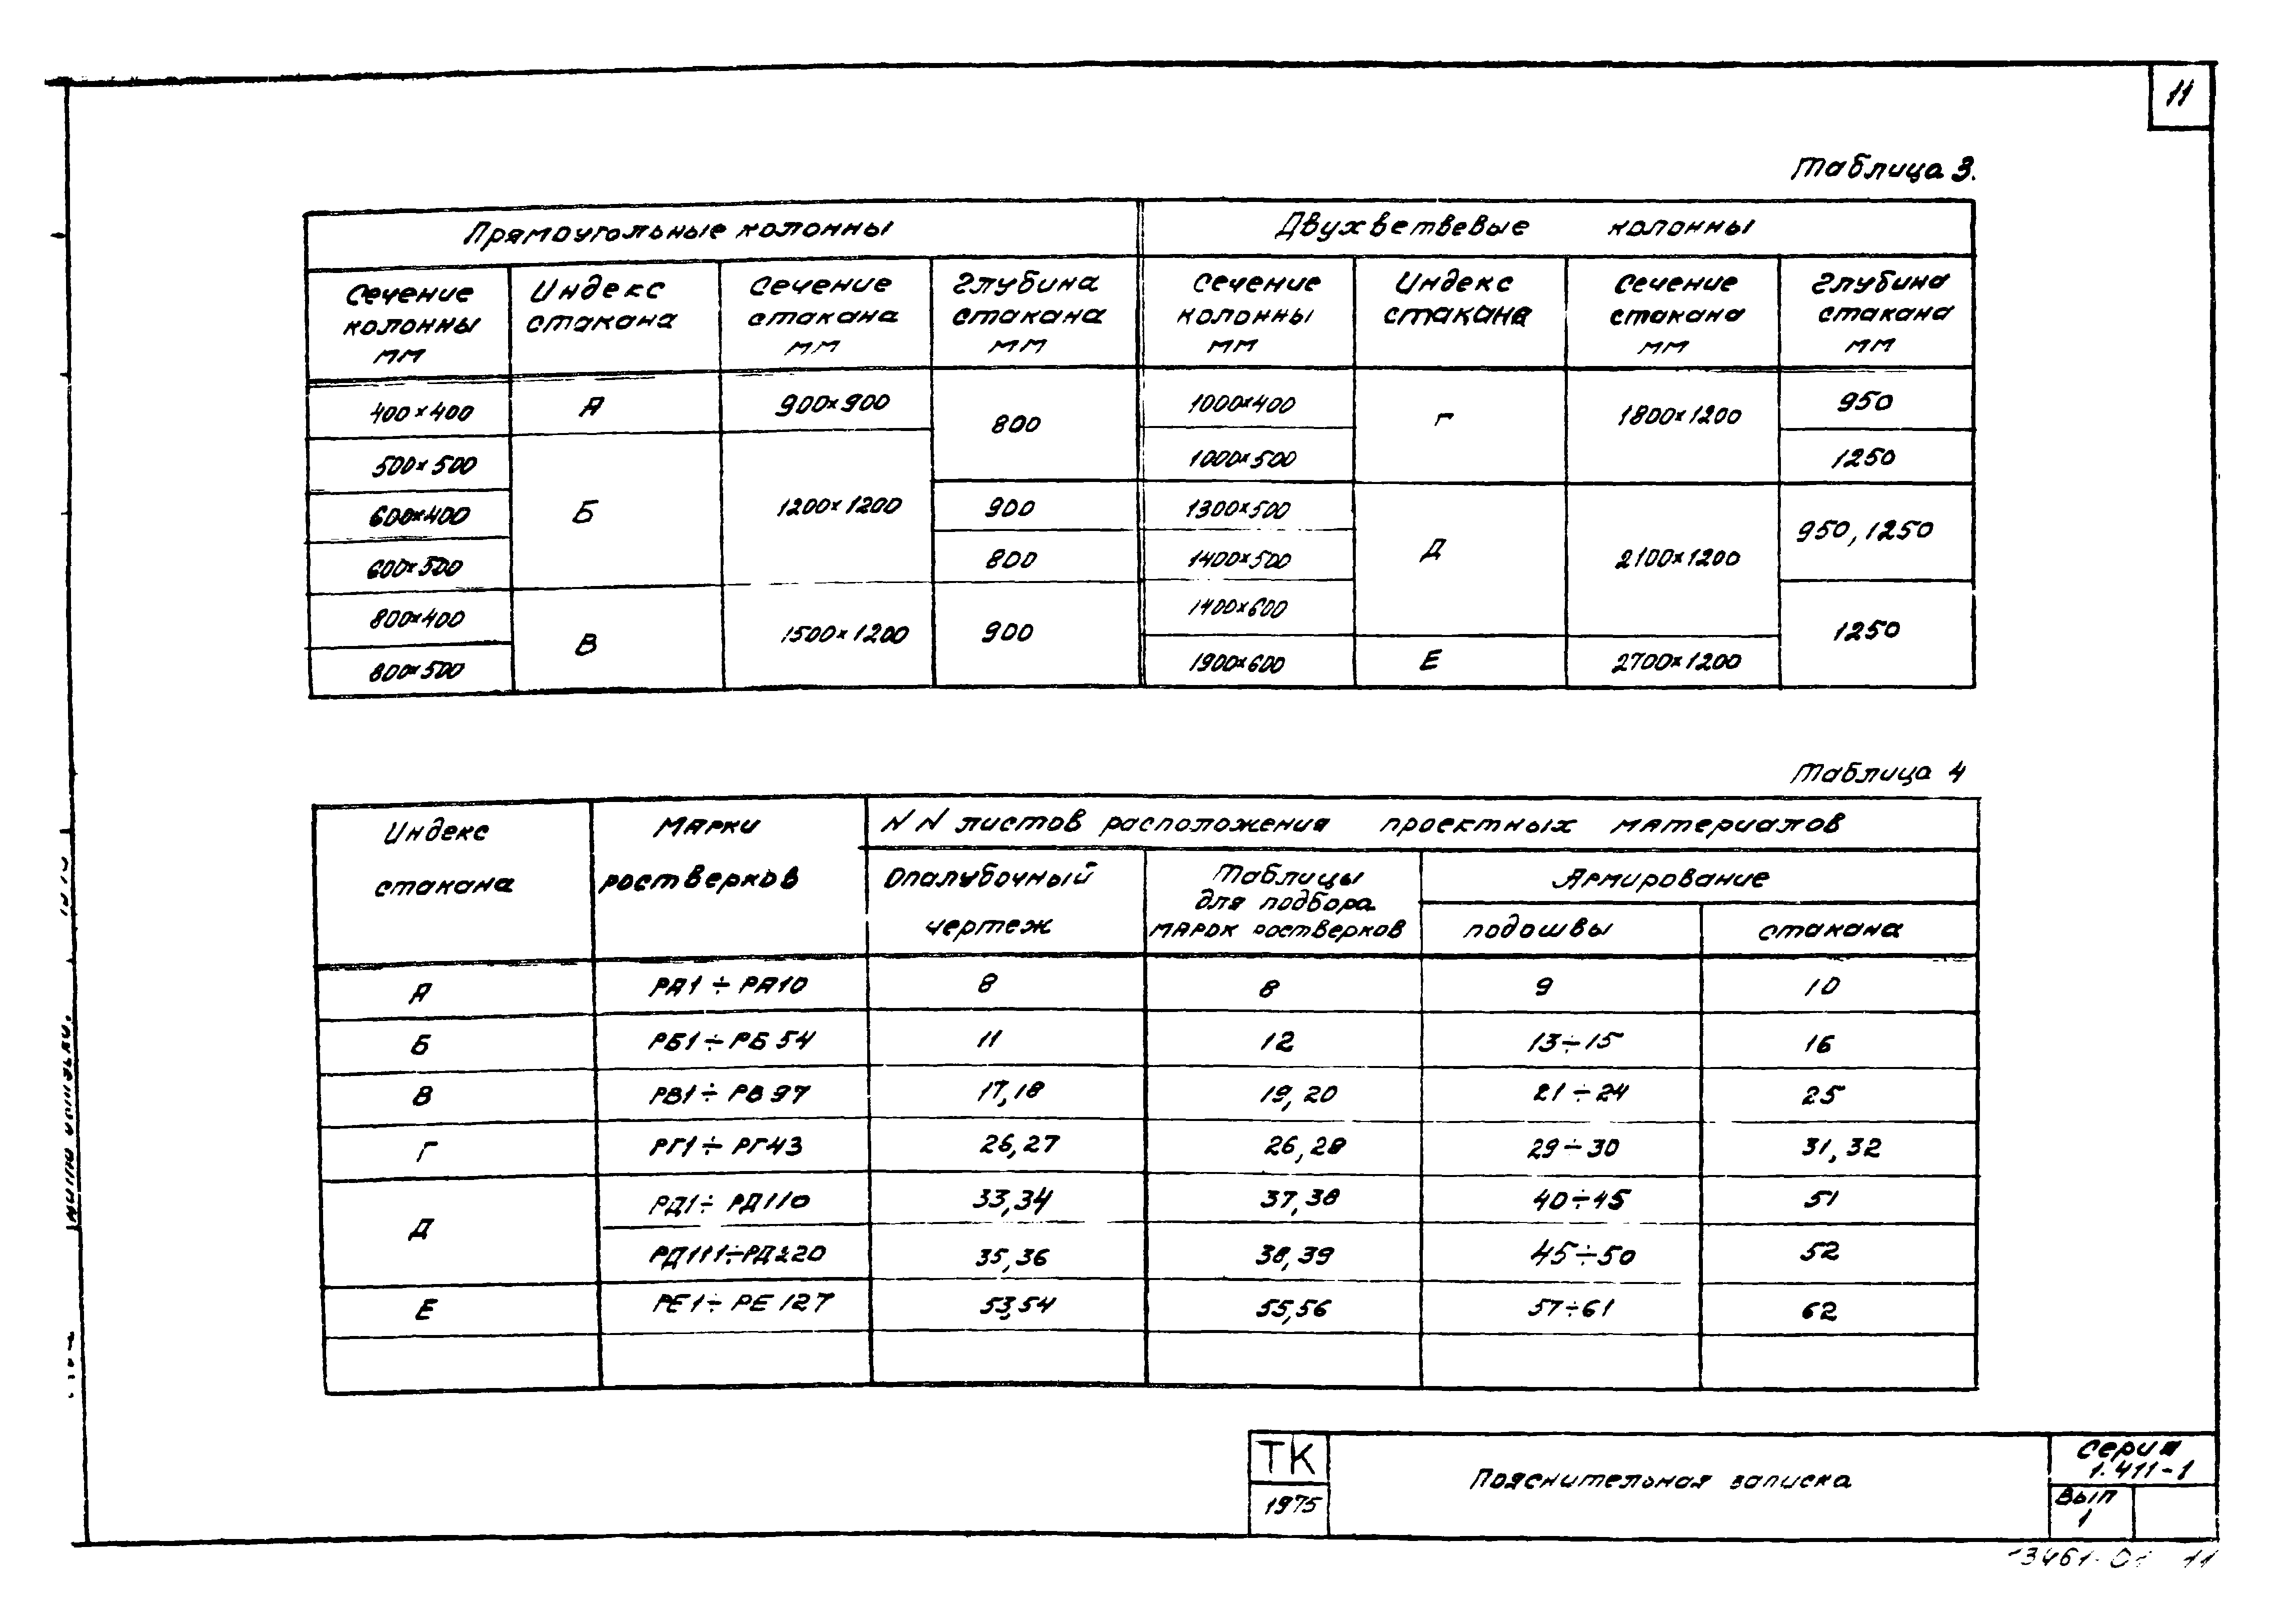 11
Таблица 3.
Прямоугольные колонны | Двухветвевые колонны
Сечение колонны мм | Индекс стакана | Сечение стакана мм | Глубина стакана мм | Сечение колонны мм | Индекс стакана | Сечение стакана мм | Глубина стакана мм
400×400 | А | 900×900 | 800 | 1000×400 | Г | 1800×1200 | 950
500×500 | Б | 1200×1200 | 1000×500 | 1250
600×400 | 900 | 1300×500 | Д | 2100×1200 | 950, 1250
600×500 | 800 | 1400×500
800×400 | В | 1500×1200 | 900 | 1400×600 | 1250
800×500 | 1900×600 | Е | 2700×1200
Таблица 4
Индекс стакана | Марки ростверков | NN листов расположения проектных материалов
Опалубочный чертеж | Таблицы для подбора марок ростверков | Армирование
подошвы | стакана
А | РА1÷РА10 | 8 | 8 | 9 | 10
Б | РБ1÷РБ54 | 11 | 12 | 13÷15 | 16
В | РВ1÷РВ97 | 17,18 | 19,20 | 21÷24 | 25
Г | РГ1÷РГ43 | 26,27 | 26,28 | 29÷30 | 31,32
Д | РД1÷РД110 | 33,34 | 37,38 | 40÷45 | 51
РД111÷РД220 | 35,36 | 38,39 | 45÷50 | 52
Е | РЕ1÷РЕ127 | 53,54 | 55,56 | 57÷61 | 62
ТК
1975
Пояснительная записка
Серия
1.411-1
Вып
1
13461-01 11